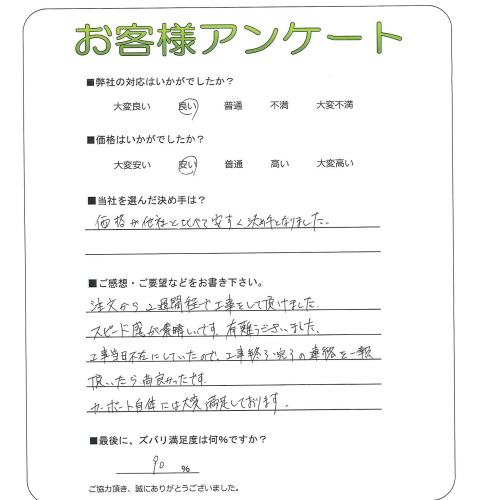 お客様アンケート
■弊社の対応はいかがでしたか？
大変良い 良い 普通 不満 大変不満
■価格はいかがでしたか？
大変安い 安い 普通 高い 大変高い
■当社を選んだ決め手は？
価格が他社と比べて安すく決め手となりました。
■ご感想・ご要望などをお書き下さい。
注文から2週間程で工事をして頂けました。
スピード感が素晴しいです。有難うございました。
工事当日不在にしていたので、工事終了・完了の連絡を一報
頂いたら尚良かったです。
カーポート自体には大変満足しております。
■最後に、ズバリ満足度は何％ですか？
90 ％
ご協力頂き、誠にありがとうございました。